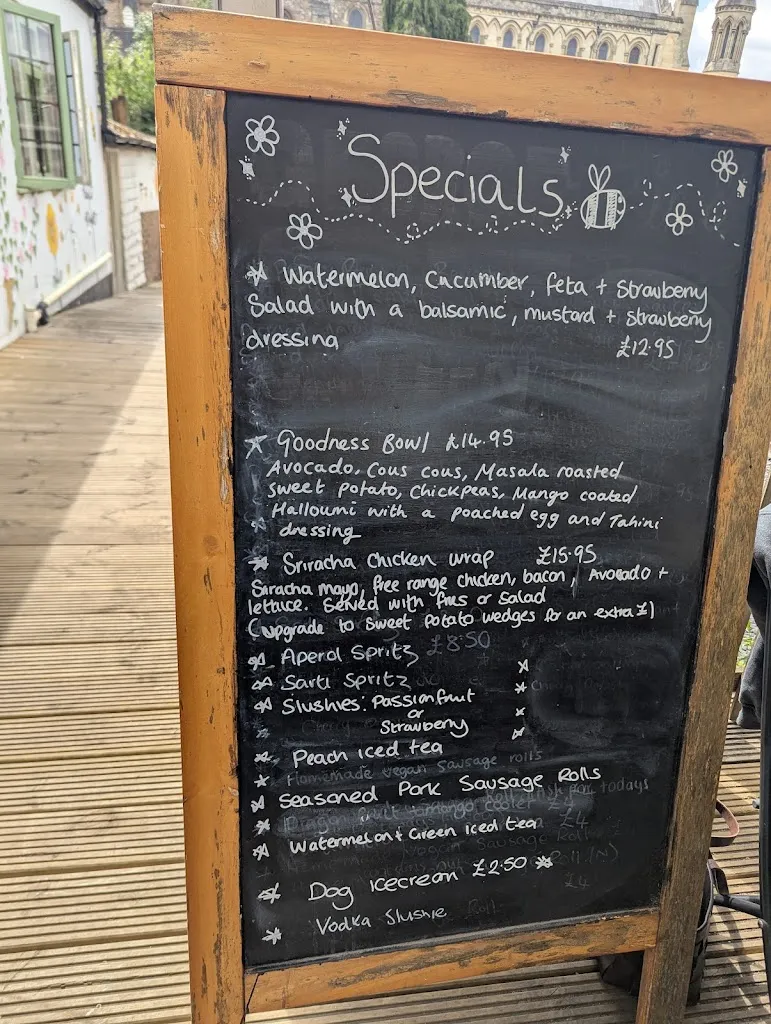 Specials
Watermelon, Cucumber, feta + Strawberry
Salad with a balsamic, mustard + strawberry
dressing £12.95
Goodness Bowl £14.95
Avocado, Cous cous, Masala roasted
sweet potato, Chickpeas, Mango coated
Halloumi with a poached egg and Tahini
dressing
Sriracha Chicken wrap £15.95
Siracha mayo, free range chicken, bacon, Avocado +
lettuce. Served with fries or Salad
(upgrade to sweet potato wedges for an extra £1)
Aperol Spritz £8.50
Sarti Spritz
Slushies: Passionfruit
or
Strawberry
Peach iced tea
Homemade vegan Sausage rolls
Seasoned Pork Sausage Rolls
Watermelon + Green iced tea
Dog icecream £2.50
Vodka Slushie